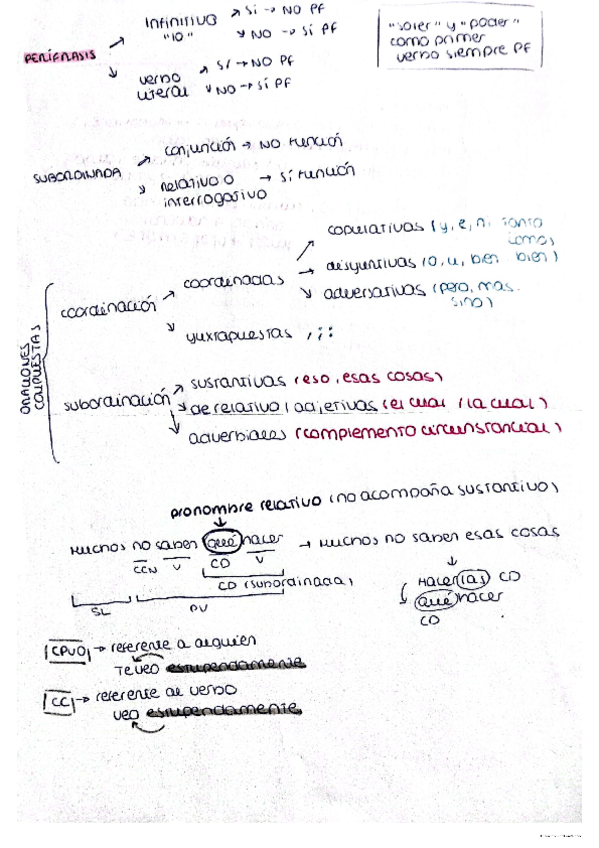 PERÍFRASIS
infinitivo → sí → NO PF
"lo" → NO → sí PF
verbo → sí → NO PF
literal → NO → sí PF
"soler" y "poder"
como primer
verbo siempre PF
SUBORDINADA
conjunción → NO función
relativo o → sí función
interrogativo
ORACIONES COMPUESTAS
coordinación
coordinadas
copulativas (y, e, ni, tanto
como)
disyuntivas (o, u, bien bien)
adversativas (pero, mas,
sino)
yuxtapuestas , ; :
subordinación
sustantivas (eso, esas cosas)
de relativo / adjetivas (el cual / la cual)
adverbiales (complemento circunstancial)
pronombre relativo (no acompaña sustantivo)
Muchos no saben qué hacer → Muchos no saben esas cosas
CCN V CD V
CD (subordinada)
SL PV
Hacer las CD
Qué hacer
CD
CPVO → referente a alguien
Te veo estupendamente
CC → referente al verbo
veo estupendamente